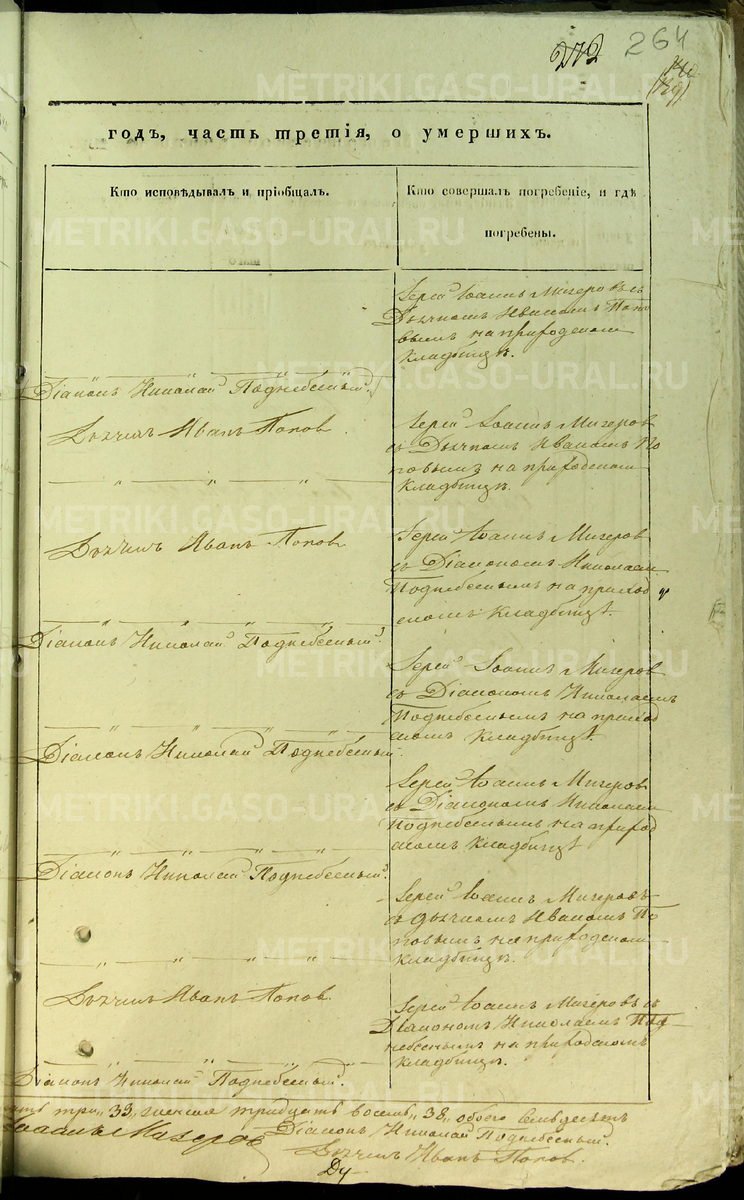 272 264
годъ, часть третія, о умершихъ.
Кто исповѣдывалъ и пріобщалъ.
Кто совершалъ погребеніе, и гдѣ
погребены.
Іерей Іоаннъ Мизеровъ съ
Дьячкомъ Иваномъ Попо
вымъ на приходскомъ
кладбищѣ.
Діаконъ Николай Поднебесный.
Дьячекъ Иванъ Попов.
Іерей Іоаннъ Мизеров
съ Дьячкомъ Иваномъ По
повымъ на приходском
кладбищѣ.
Дьячекъ Иванъ Попов
Іерей Іоаннъ Мизеров
съ Діакономъ Николаем
Поднебеснымъ на приход
скомъ кладбищѣ.
Діаконъ Николай Поднебесный.
Іерей Іоаннъ Мизеров
съ Діакономъ Николаемъ
Поднебеснымъ на приход
скомъ кладбищѣ.
Діаконъ Николай Поднебесный.
Іерей Іоаннъ Мизеров
съ Діакономъ Николаем
Поднебеснымъ на приход
скомъ кладбищѣ
Діаконъ Николай Поднебесный.
Іерей Іоаннъ Мизеровъ
съ дьячкомъ Иваномъ По
повымъ на приходском
кладбищѣ.
Дьячекъ Иванъ Попов.
Іерей Іоаннъ Мизеровъ съ
Діакономъ Николаемъ Под
небеснымъ на приходскомъ
кладбищѣ.
Діаконъ Николай Поднебесный.
три „33, женска тридцать восемь „38„ обоего семьдесят
Іоаннъ Мизеров Діаконъ Николай Поднебесный.
Дьячекъ Иванъ Попов.
METRIKI.GASO-URAL.RU